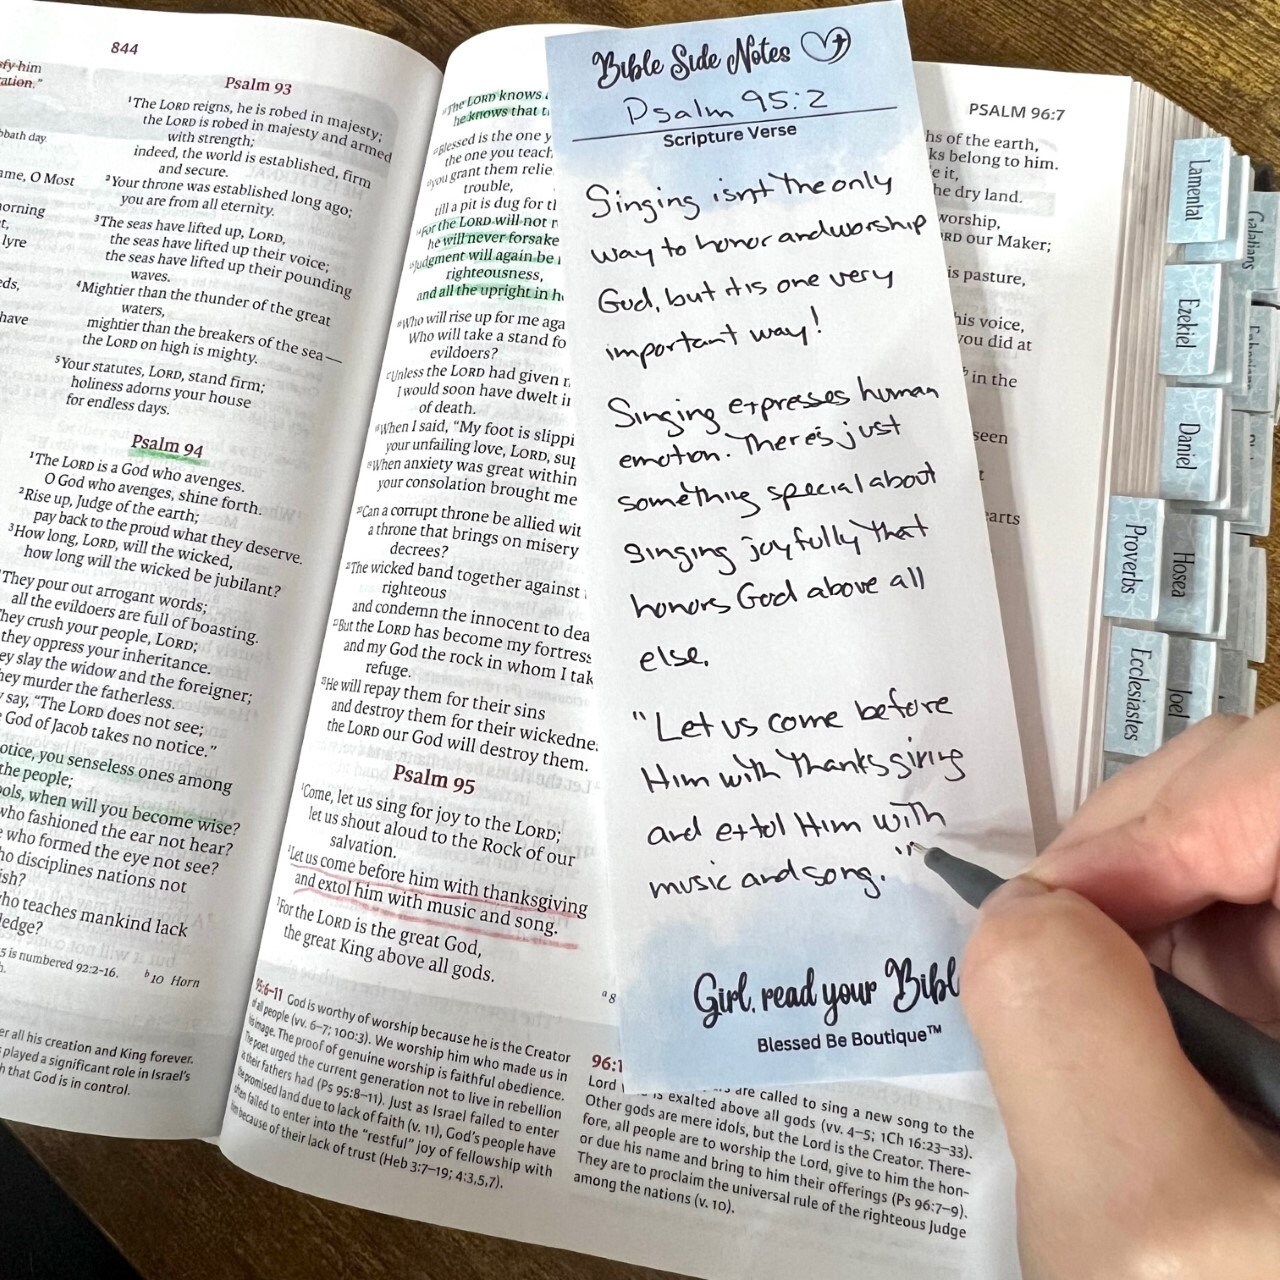 844
fy him
ation."
bbath day
ame, O Most
orning
lyre
eds,
have
Psalm 93
1The LORD reigns, he is robed in majesty;
the LORD is robed in majesty and armed
with strength;
indeed, the world is established, firm
and secure.
2Your throne was established long ago;
you are from all eternity.
3The seas have lifted up, LORD,
the seas have lifted up their voice;
the seas have lifted up their pounding
waves.
4Mightier than the thunder of the great
waters,
mightier than the breakers of the sea—
the LORD on high is mighty.
5Your statutes, LORD, stand firm;
holiness adorns your house
for endless days.
Psalm 94
1The LORD is a God who avenges.
O God who avenges, shine forth.
2Rise up, Judge of the earth;
pay back to the proud what they deserve.
3How long, LORD, will the wicked,
how long will the wicked be jubilant?
They pour out arrogant words;
all the evildoers are full of boasting.
hey crush your people, LORD;
they oppress your inheritance.
ey slay the widow and the foreigner;
hey murder the fatherless.
say, "The LORD does not see;
God of Jacob takes no notice."
otice, you senseless ones among
the people;
ools, when will you become wise?
who fashioned the ear not hear?
who formed the eye not see?
ho disciplines nations not
ish?
ho teaches mankind lack
ledge?
5 is numbered 92:2-16. b10 Horn
er all his creation and King forever.
played a significant role in Israel's
h that God is in control.
The LORD knows
he knows that t
Blessed is the one y
the one you teach
you grant them relie
trouble,
till a pit is dug for th
14For the LORD will not r
he will never forsake
15Judgment will again be
righteousness,
and all the upright in h
16Who will rise up for me aga
Who will take a stand fo
evildoers?
17Unless the LORD had given
I would soon have dwelt i
of death.
18When I said, "My foot is slippi
your unfailing love, LORD, sup
19When anxiety was great within
your consolation brought me
20Can a corrupt throne be allied wit
a throne that brings on misery
decrees?
21The wicked band together against
righteous
and condemn the innocent to dea
22But the LORD has become my fortress
and my God the rock in whom I tak
refuge.
23He will repay them for their sins
and destroy them for their wickedne
the LORD our God will destroy them.
Psalm 95
1Come, let us sing for joy to the LORD;
let us shout aloud to the Rock of our
salvation.
2Let us come before him with thanksgiving
and extol him with music and song.
3For the LORD is the great God,
the great King above all gods.
a 8
95:6–11 God is worthy of worship because he is the Creator
of all people (vv. 6–7; 100:3). We worship him who made us in
his image. The proof of genuine worship is faithful obedience.
The poet urged the current generation not to live in rebellion
as their fathers had (Ps 95:8–11). Just as Israel failed to enter
the promised land due to lack of faith (v. 11), God's people have
often failed to enter into the "restful" joy of fellowship with
him because of their lack of trust (Heb 3:7–19; 4:3,5,7).
Bible Side Notes
Psalm 95:2
Scripture Verse
Singing isn't the only
way to honor and worship
God, but it is one very
important way!
Singing expresses human
emotion. There's just
something special about
singing joyfully that
honors God above all
else.
"Let us come before
Him with thanksgiving
and extol Him with
music and song."
Girl, read your Bibl
Blessed Be Boutique™
PSALM 96:7
hs of the earth,
ks belong to him.
e it,
he dry land.
worship,
RD our Maker;
is pasture,
his voice,
you did at
b in the
seen
t
earts
96:1
Lord are called to sing a new song to the
is exalted above all gods (vv. 4–5; 1Ch 16:23–33).
Other gods are mere idols, but the Lord is the Creator. There-
fore, all people are to worship the Lord, give to him the hon-
or due his name and bring to him their offerings (Ps 96:7–9).
They are to proclaim the universal rule of the righteous Judge
among the nations (v. 10).
Lamentat
Galatians
Ezekiel
Daniel
Proverbs
Hosea
Ecclesiastes
Joel